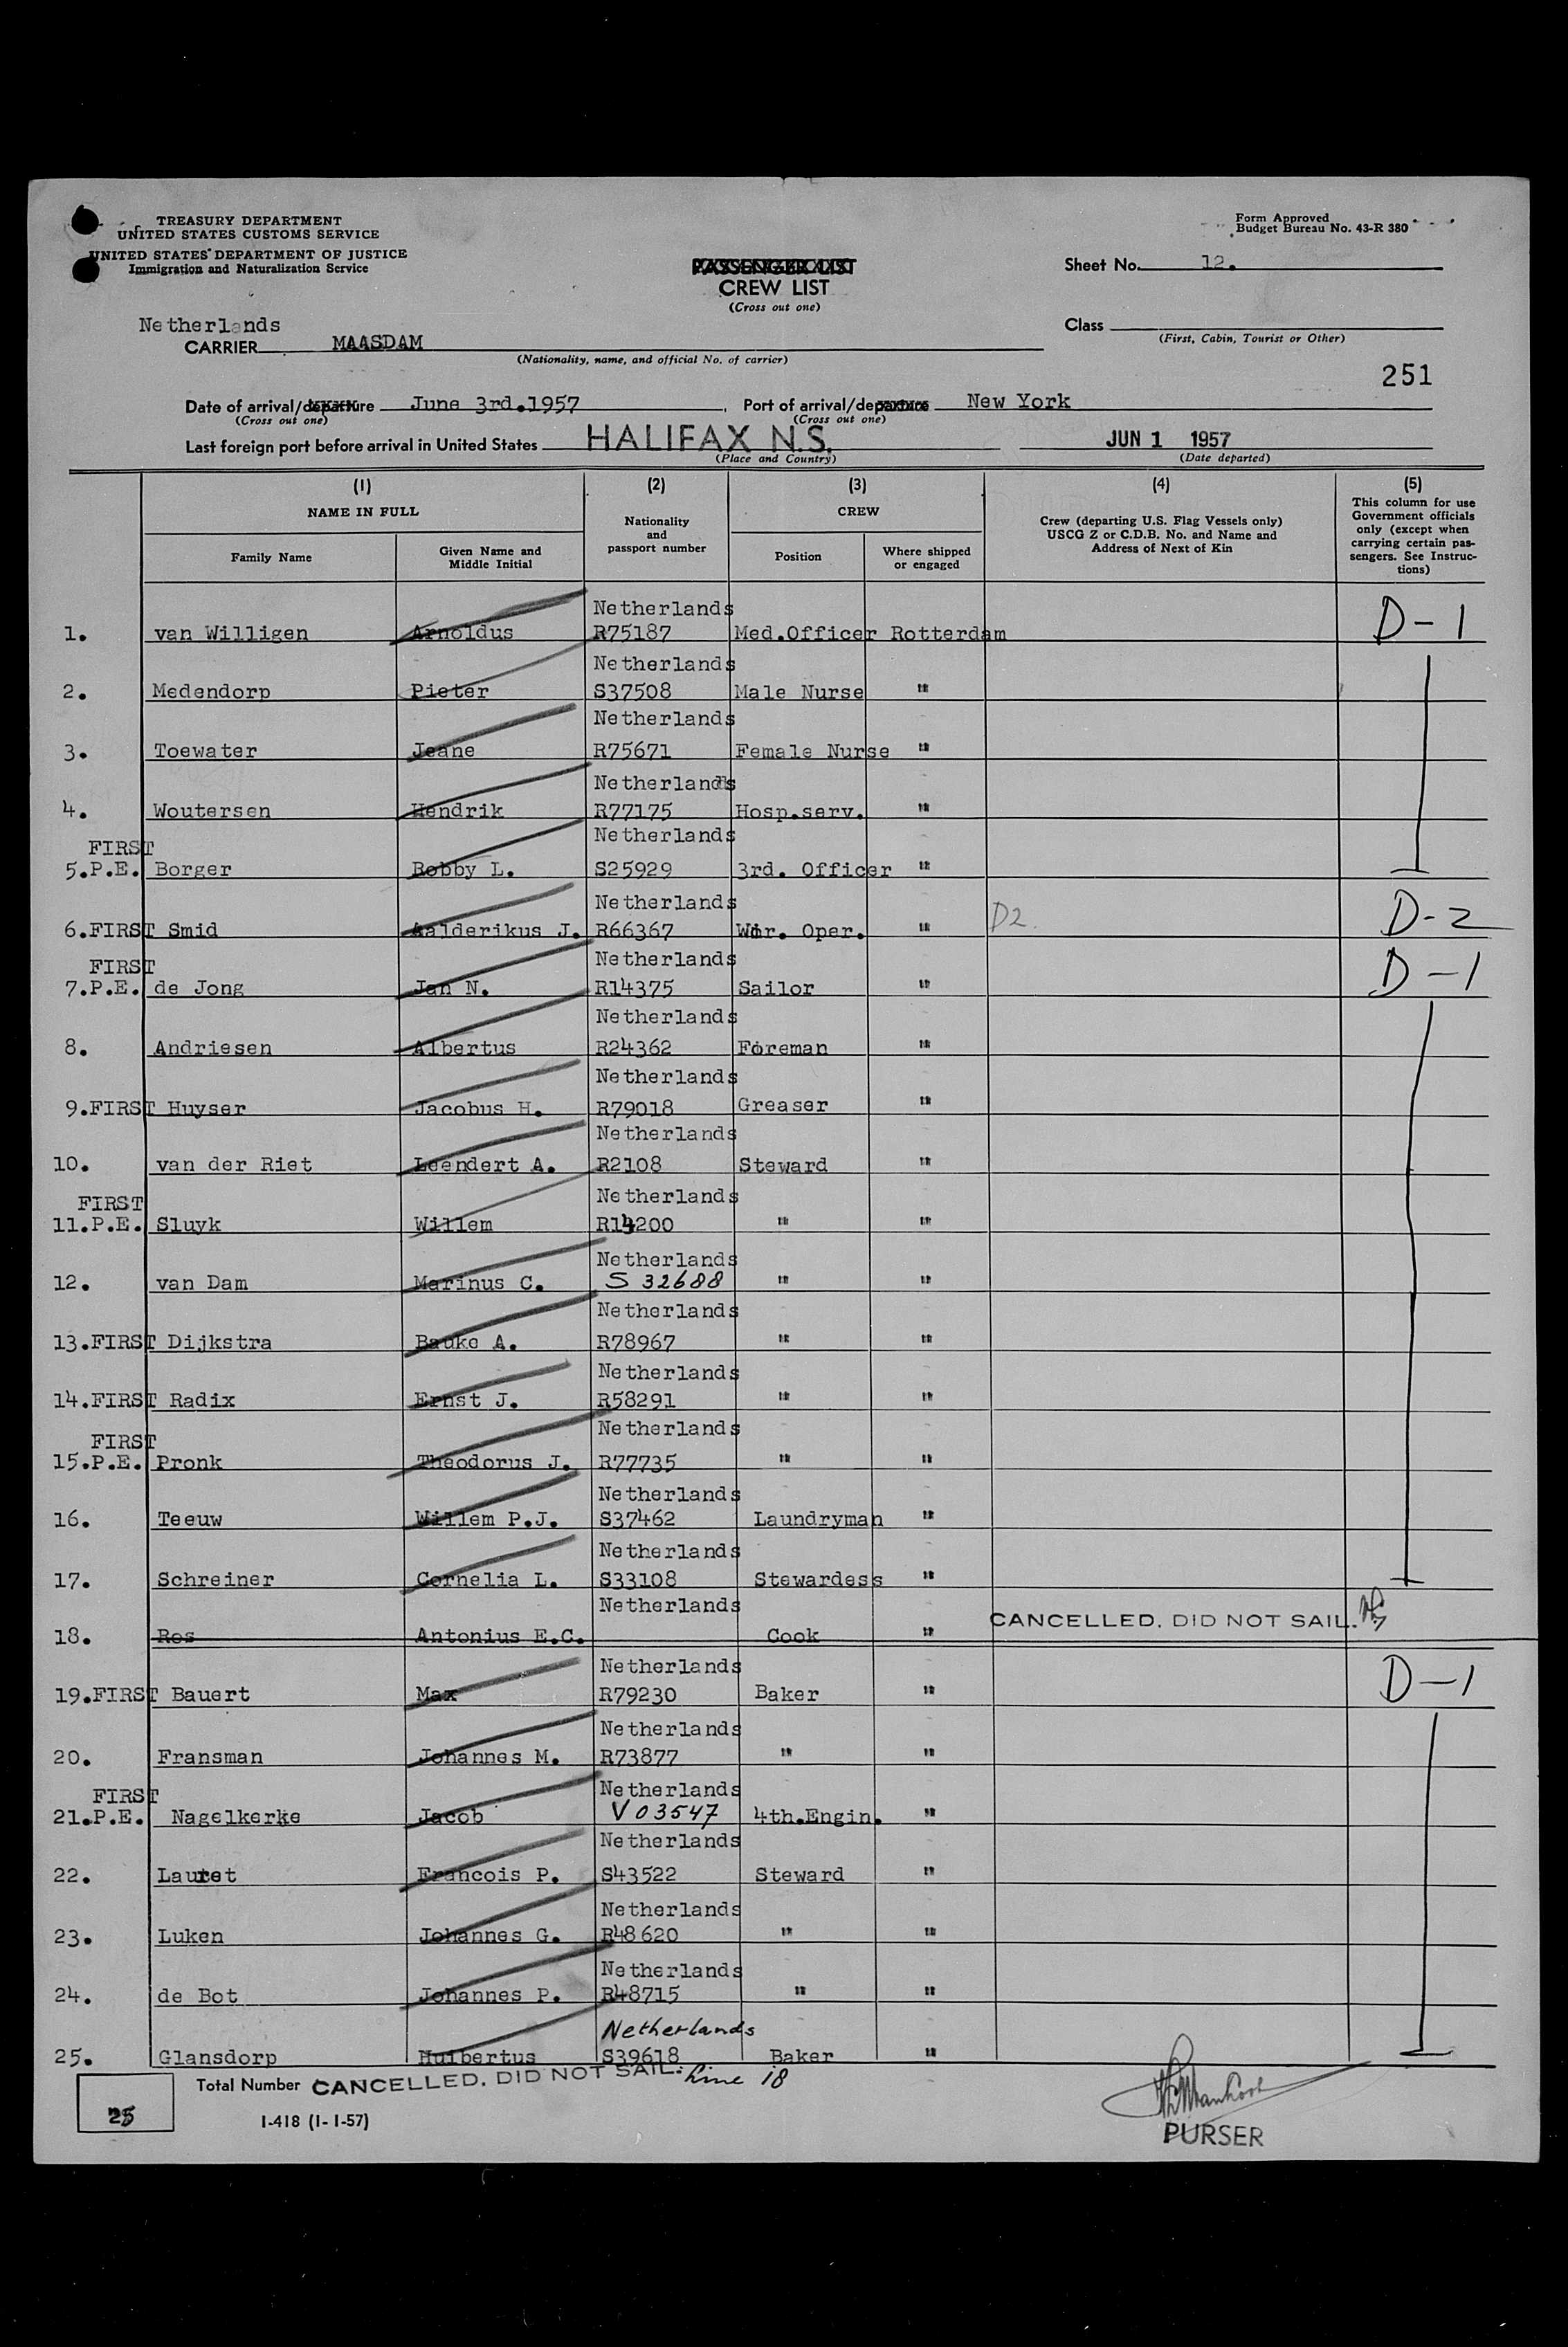 TREASURY DEPARTMENT
UNITED STATES CUSTOMS SERVICE
UNITED STATES DEPARTMENT OF JUSTICE
Immigration and Naturalization Service
Form Approved
Budget Bureau No. 43-R 380
PASSENGER LIST
CREW LIST
(Cross out one)
Sheet No. 12.
Netherlands
CARRIER MAASDAM
(Nationality, name, and official No. of carrier)
Class
(First, Cabin, Tourist or Other)
251
Date of arrival/departure June 3rd.1957, Port of arrival/departure New York
(Cross out one) (Cross out one)
Last foreign port before arrival in United States HALIFAX N.S. JUN 1 1957
(Place and Country) (Date departed)
(1) (2) (3) (4) (5)
NAME IN FULL
Family Name
Given Name and Middle Initial
Nationality and passport number
CREW
Position
Where shipped or engaged
Crew (departing U.S. Flag Vessels only)
USCG Z or C.D.B. No. and Name and
Address of Next of Kin
This column for use
Government officials
only (except when
carrying certain pas-
sengers. See Instruc-
tions)
Netherlands
1. van Willigen Arnoldus R75187 Med.Officer Rotterdam D-1
Netherlands
2. Medendorp Pieter S37508 Male Nurse "
Netherlands
3. Toewater Jeane R75671 Female Nurse "
Netherlands
4. Woutersen Hendrik R77175 Hosp.serv. "
FIRST Netherlands
5.P.E. Borger Robby L. S25929 3rd. Officer "
Netherlands
6.FIRST Smid Aalderikus J. R66367 Wir. Oper. " D2. D-2
FIRST Netherlands
7.P.E. de Jong Jan N. R14375 Sailor " D-1
Netherlands
8. Andriesen Albertus R24362 Foreman "
Netherlands
9.FIRST Huyser Jacobus H. R79018 Greaser "
Netherlands
10. van der Riet Leendert A. R2108 Steward "
FIRST Netherlands
11.P.E. Sluyk Willem R14200 " "
Netherlands
12. van Dam Marinus C. S 32688 " "
Netherlands
13.FIRST Dijkstra Bauke A. R78967 " "
Netherlands
14.FIRST Radix Ernst J. R58291 " "
FIRST Netherlands
15.P.E. Pronk Theodorus J. R77735 " "
Netherlands
16. Teeuw Willem P.J. S37462 Laundryman "
Netherlands
17. Schreiner Cornelia L. S33108 Stewardess "
Netherlands
18. Ros Antonius E.C. Cook " CANCELLED. DID NOT SAIL.
Netherlands
19.FIRST Bauert Max R79230 Baker " D-1
Netherlands
20. Fransman Johannes M. R73877 " "
FIRST Netherlands
21.P.E. Nagelkerke Jacob V 03547 4th.Engin. "
Netherlands
22. Lauret Francois P. S43522 Steward "
Netherlands
23. Luken Johannes G. R48620 " "
Netherlands
24. de Bot Johannes P. R48715 " "
Netherlands
25. Glansdorp Huibertus S39618 Baker "
25
Total Number CANCELLED. DID NOT SAIL: line 18
I-418 (1-1-57)
PURSER